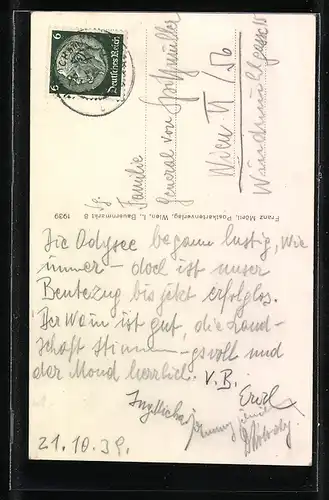 6 6
Deutsches Reich
Sg.
Familie
General von Spitzmüller
Wien VI / 56
Windmühlgasse
Franz Mörtl, Postkartenverlag, Wien, I., Bauernmarkt 8 1939
Die Odysee begann lustig, wie
immer – doch ist unser
Beutezug bis jetzt erfolglos.
Der Wein ist gut, die Land-
schaft stimmungsvoll und
der Mond herrlich. V. B.
Erich
21.10.39.